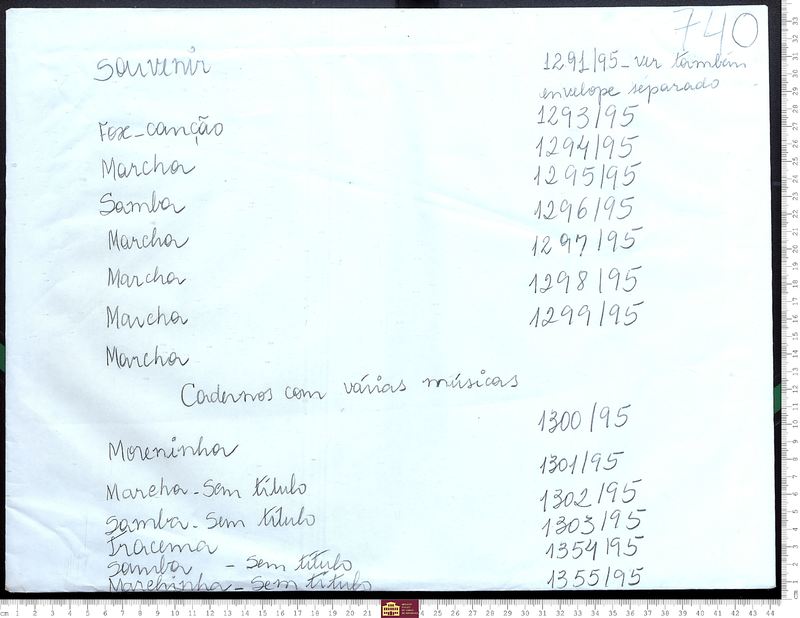 740
Souvenir 1291/95 - ver também
envelope separado
Fox-canção 1293/95
Marcha 1294/95
Samba 1295/95
Marcha 1296/95
Marcha 1297/95
Marcha 1298/95
Marcha 1299/95
Cadernos com várias músicas
Moreninha 1300/95
Marcha - Sem título 1301/95
Samba - Sem título 1302/95
Iracema 1303/95
Samba - Sem título 1354/95
Marchinha - Sem título 1355/95